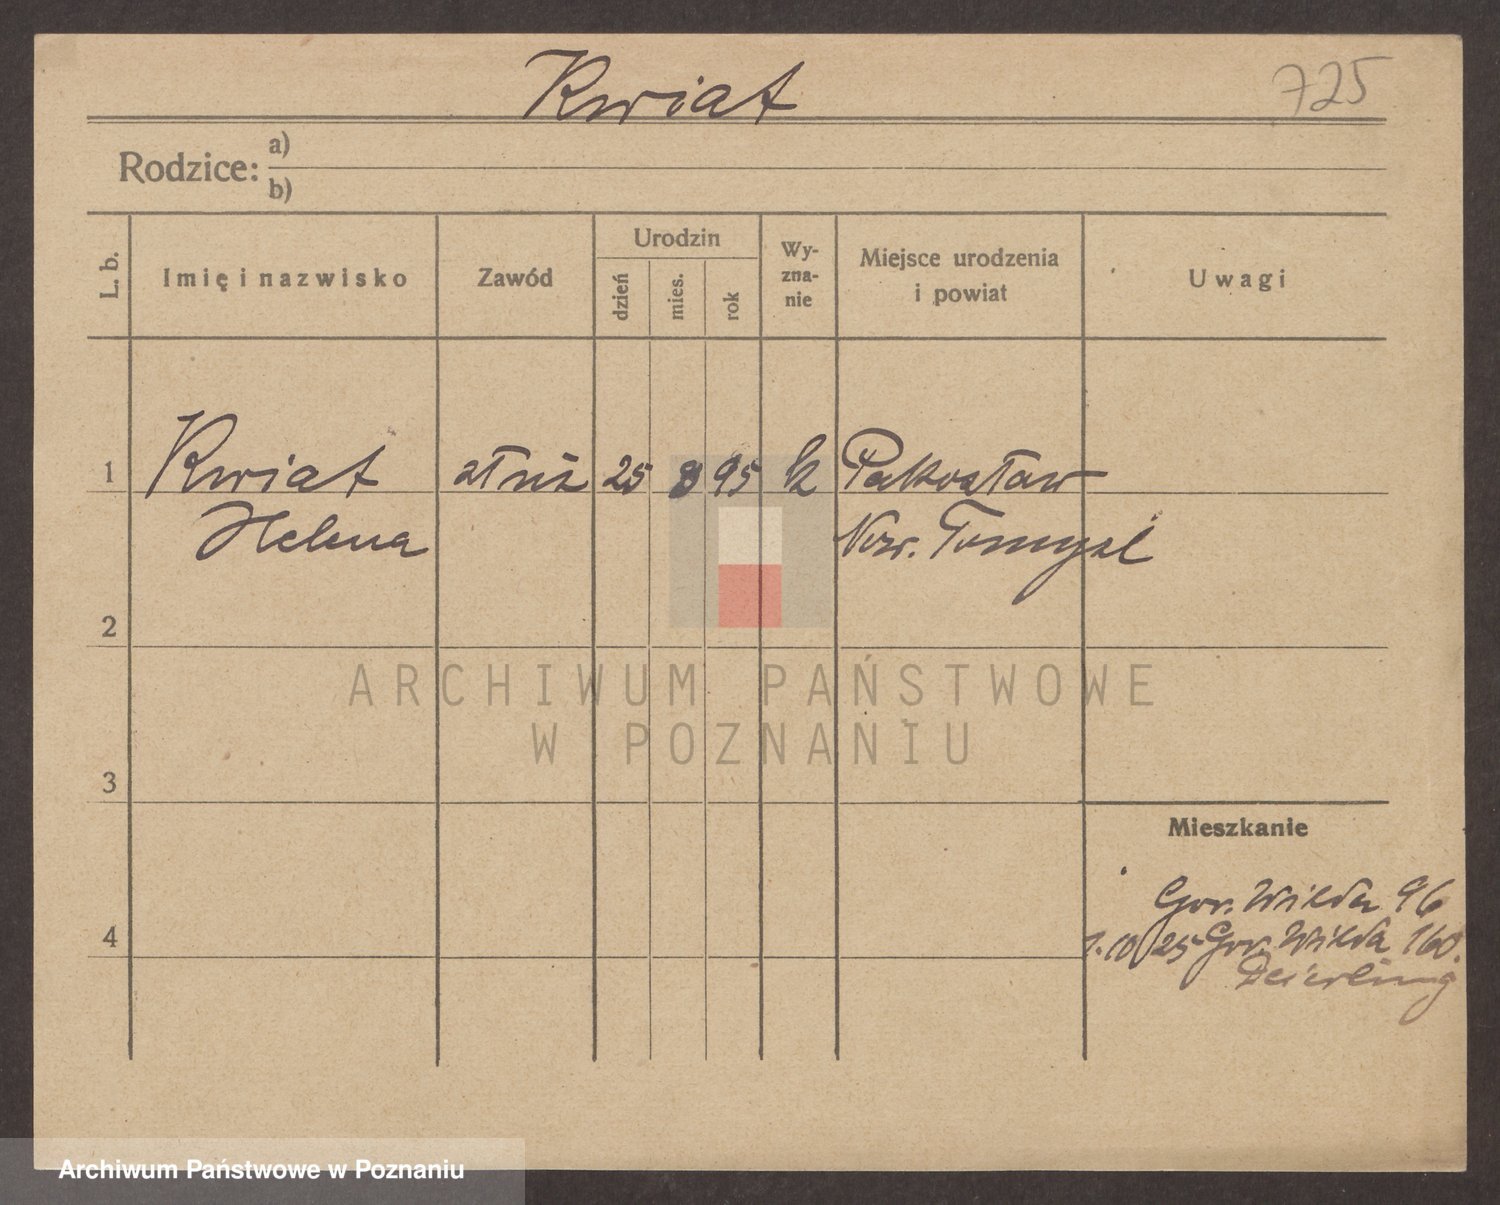 Kwiat
725
Rodzice: a)
b)
L. b.
Imię i nazwisko
Zawód
Urodzin
dzień
mies.
rok
Wy-
zna-
nie
Miejsce urodzenia
i powiat
Uwagi
1
Kwiat
25 8 95 k Pakosław
Helena
Now. Tomysl
2
ARCHIWUM PAŃSTWOWE
W POZNANIU
3
Mieszkanie
Gor. Wilda 96
4
1.10 25 Gor. Wilda 160.
Deierling
Archiwum Państwowe w Poznaniu